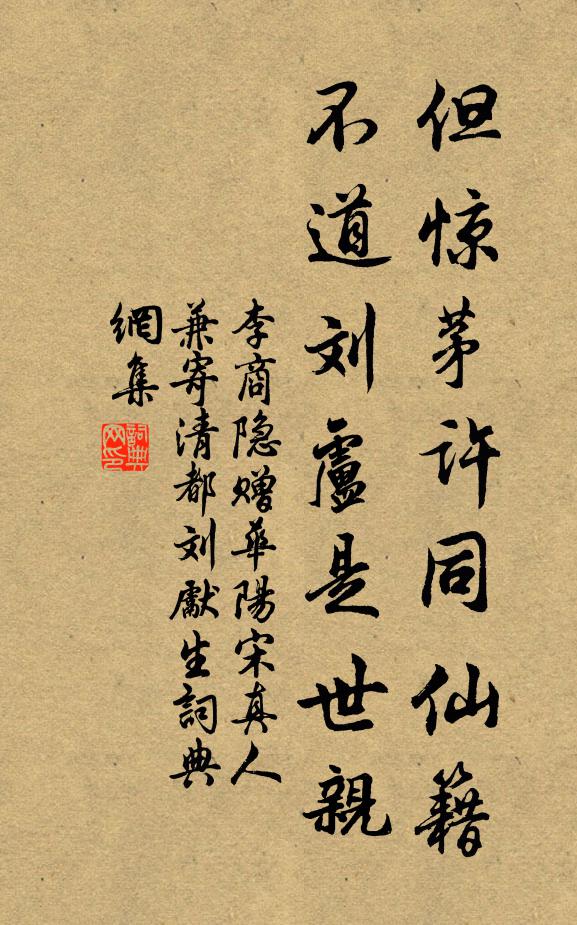 但惊茅许同仙籍
不道刘盧是世親
李商隐赠華陽宋真人
兼寄清都刘獻生詞典
網集
詞典网印